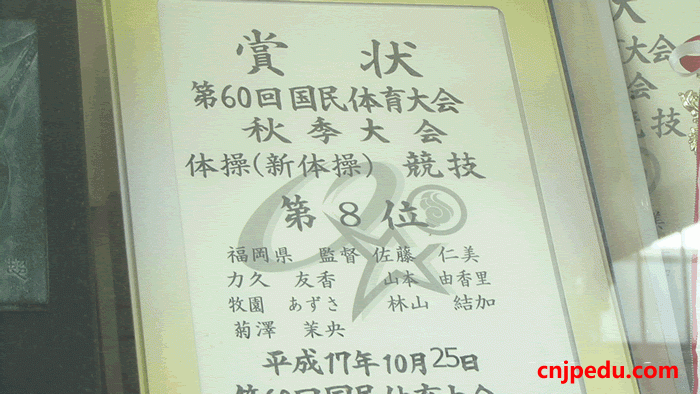 賞 状
第60回国民体育大会
秋季大会
体操(新体操) 競技
第8位
福岡県 監督 佐藤 仁美
力久 友香 山本 由香里
牧園 あずさ 林山 結加
菊澤 茉央
平成17年10月25日
第60回国民体育大会
大会
会
競技
cnjpedu.com